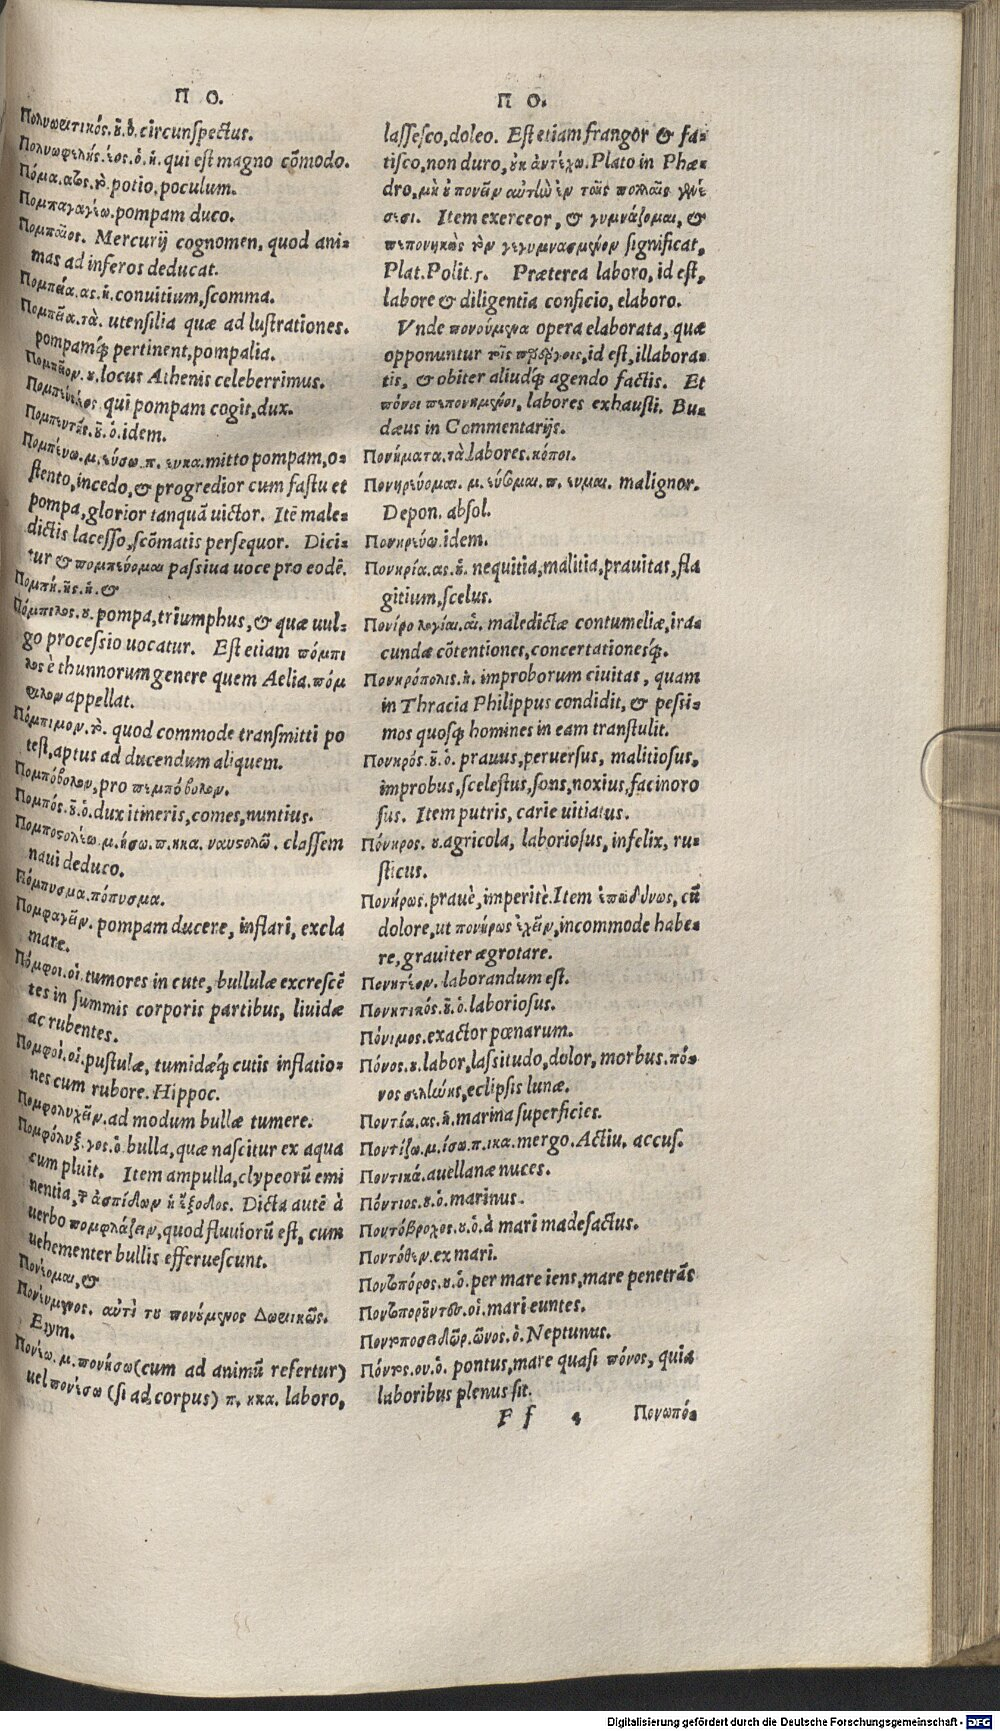 Π Ο.
Πολυωπτικός.ȣ͂.ὁ.circunſpectus.
Πολυωφελὴς.έος.ὁ.ἡ. qui eſt magno cōmodo.
Πόμα.ατος.τὸ.potio,poculum.
Πομπαγαγέω.pompam duco.
Πομπαῖος. Mercurij cognomen, quod ani-
mas ad inferos deducat.
Πομπεία.ας.ἡ.conuitium,ſcomma.
Πομπεῖα.τὰ. utenſilia quæ ad luſtrationes.
pompamq́; pertinent,pompalia.
Πομπεῖον.ȣ.locus Athenis celeberrimus.
qui pompam cogit,dux.
Πομπευτής.ȣ͂.ὁ.idem.
Πομπεύω.μ.εύσω.π.ευκα.mitto pompam,o-
ſtento,incedo,& progredior cum faſtu et
pompa,glorior tanquā uictor. Itē male-
dictis laceſſo,ſcōmatis perſequor. Dici-
tur & πομπεύομαι paſsiua uoce pro eodē.
Πομπή.ῆς.ἡ.&
Πόμπιλος.ȣ.pompa,triumphus,& quæ uul-
go proceſsio uocatur. Eſt etiam πόμπι
λος è thunnorum genere quem Aelia.πόμ
φιλον appellat.
Πόμπιμον.τὸ. quod commode tranſmitti po
teſt,aptus ad ducendum aliquem.
Πομπόβολον,pro πεμπόβολον.
Πομπός.ȣ͂.ὁ.dux itineris,comes,nuntius.
Πομποστολέω.μ.ήσω.π.ηκα. ναυστολῶ. claſſem
naui deduco.
Πόμπυσμα.πόπυσμα.
Πομφαγεῖν. pompam ducere, inflari, excla
mare.
Πόμφοι.οἱ.tumores in cute, bullulæ excreſcē
tes in ſummis corporis partibus, liuidæ
ac rubentes.
Πομφοί.οἱ.puſtulæ, tumidæq́; cutis inflatio-
nes cum rubore.Hippoc.
Πομφολυχεῖν.ad modum bullæ tumere.
Πομφόλυξ.γος.ὁ.bulla,quæ naſcitur ex aqua
cum pluit. Item ampulla,clypeorū emi
nentia,τ ἀσπίδων ἡ ἔξοδος. Dicta autē à
uerbo πομφλάζειν,quod fluuiorū eſt, cum
uehementer bullis efferueſcunt.
Πονέομαι,&
Πονεύμενος. αὐτὶ τȣ πονούμενος Δωρικῶς.
Etym.
Πονέω.μ.πονήσω(cum ad animū refertur)
uel πονέσω (ſi ad corpus) π. ηκα. laboro,
Π Ο.
laſſeſco,doleo. Eſt etiam frangor & fa-
tiſco,non duro,ȣκ ἀντέχω.Plato in Phæ-
dro,μὴ ὑπονεῖν αὐτὼ ἐν ταῖς πολλαῖς γενέ
σεσι. Item exerceor, & γυμνάζομαι, &
πεπονηκὼς τὸν γεγυμνασμένον ſignificat,
Plat.Polit.5. Præterea laboro,id eſt,
labore & diligentia conficio,elaboro.
Vnde πονούμενα opera elaborata, quæ
opponuntur τοῖς παρέργοις,id eſt,illabora-
tis, & obiter aliudq́; agendo factis. Et
πόνοι πεπονημένοι, labores exhauſti. Bu-
dæus in Commentarijs.
Πονήματα.τὰ.labores.κόποι.
Πονηρεύομαι. μ.εύσομαι.π.ευμαι. malignor.
Depon.abſol.
Πονηρεύω.idem.
Πονηρία.ας.ἡ. nequitia,malitia,prauitas,fla
gitium,ſcelus.
Πονιρολογίαι.αἱ. maledictæ contumeliæ,ira-
cundæ cōtentiones,concertationesq́;.
Πονηρόπολις.ἡ. improborum ciuitas, quam
in Thracia Philippus condidit, & peſsi-
mos quoſq́; homines in eam tranſtulit.
Πονηρός.ȣ͂.ὁ. prauus,peruerſus, malitioſus,
improbus,ſceleſtus,ſons,noxius,facinoro
ſus. Item putris, carie uitiatus.
Πόνηρος. ȣ.agricola, laborioſus,infelix, ru-
ſticus.
Πονήρως.prauè,imperitè.Item ἐπωδύνως, cū
dolore,ut πονήρως ἔχειν,incommode habe-
re,grauiter ægrotare.
Πονητέον.laborandum eſt.
Πονητικός.ȣ͂.ὁ.laborioſus.
Πόνιμος.exactor pœnarum.
Πόνος.ȣ.labor,laſsitudo,dolor, morbus.πό-
νος σελήνης,eclipſis lunæ.
Ποντία.ας.ἡ.marina ſuperficies.
Ποντίζω.μ.ίσω.π.ικα.mergo.Actiu.accuſ.
Ποντικά.auellanæ nuces.
Πόντιος.ȣ.ὁ.marinus.
Ποντόβροχος.ȣ.ὁ.à mari madefactus.
Ποντόθεν.ex mari.
Ποντοπόρος.ȣ.ὁ.per mare iens,mare penetrās
Ποντοποροῦντες.οἱ.mari euntes.
Ποντοποσειδῶν.ῶνος.ὁ.Neptunus.
Πόντος.ου.ὁ. pontus,mare quaſi πόνος, quia
laboribus plenus ſit.
F f 4 Πονωπό-
Digitalisierung gefördert durch die Deutsche Forschungsgemeinschaft - DFG